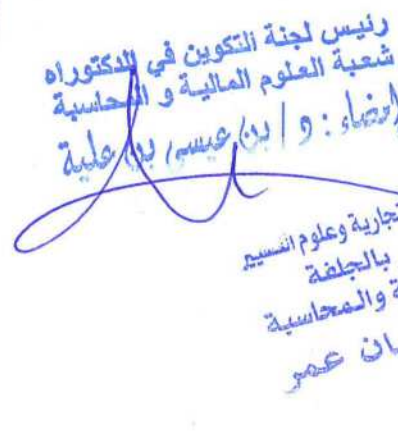 رئيس لجنة التكوين في الدكتوراه
شعبة العلوم المالية و المحاسبة
إمضاء : د / بن عيسى بن علية
تجارية وعلوم التسيير
بالجلفة
ة والمحاسبة
ان عمر